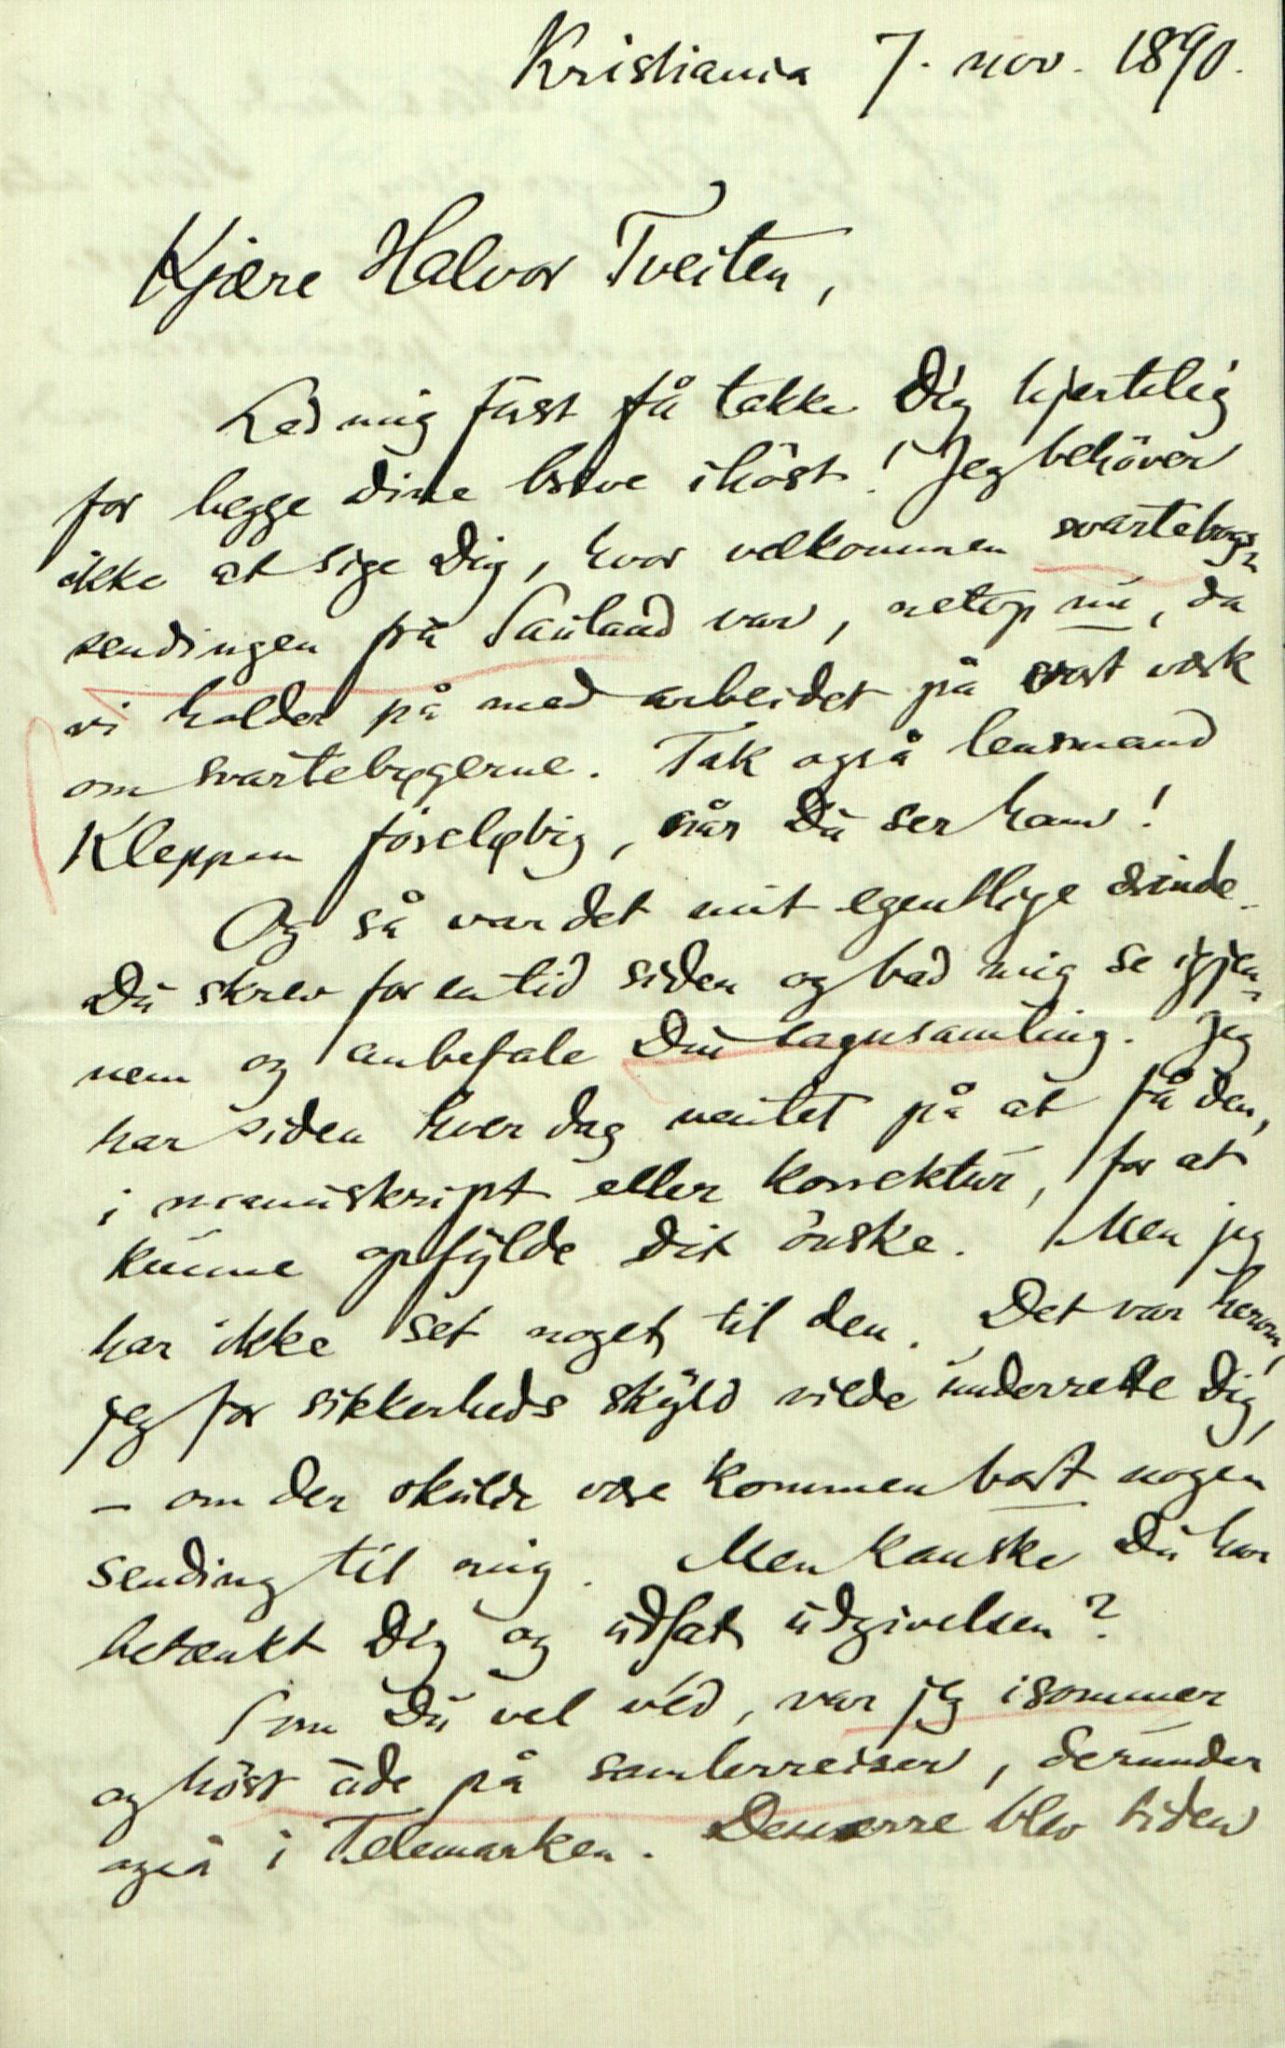 Kristiania 7. nov. 1890.
Kjære Halvor Tveiten,
Lad mig först få takke Dig hjertelig
for begge dine breve ihöst! Jeg behöver
ikke at sige Dig, hvor velkommen svartebogs-
sendingen fra Sauland var, netop nu, da
vi holder på med arbeidet på vort verk
om svartebøgerne. Tak også lensmand
Kleppen foreløbig, når Du ser ham!
Og så var det mit egentlige ærinde.
Du skrev for en tid siden og bad mig se igjen-
nem og anbefale Din sagnsamling. Jeg
har siden hver dag ventet på at få den,
i manuskript eller korrektur, for at
kunne opfylde dit önske. Men jeg
har ikke set noget til den. Det var herom,
jeg for sikkerheds skyld vilde underrette Dig,
– om der skulde være kommen bort nogen
sending til mig. Men kanske Du har
betænkt Dig og udsat udgivelsen?
Som Du vel véd, var jeg isommer
og höst ude på samlerreiser, derunder
også i Telemarken. Desværre blev tiden